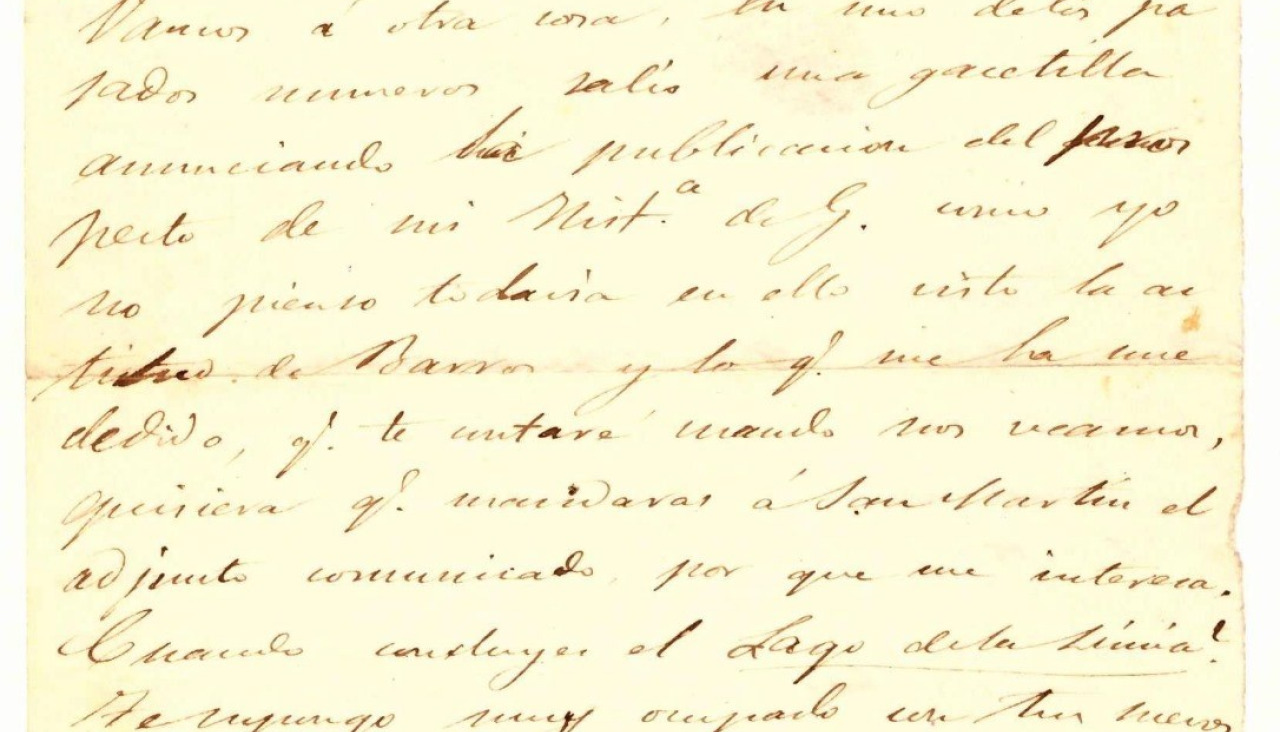 Vamos á otra cosa. En uno de los pa
sados numeros salió una gacetilla
anunciando la publicacion del pros
pecto de mi Hist.ª de G. como yo
no pienso todavia en ello visto la ac
titud de Barros y lo q.e me ha suce
dedido, q.e te contaré cuando nos veamos,
quisiera q.e mandaras á San Martin el
adjunto comunicado, por que me interesa.
Cuando concluyes el Lago de la Limia?
Te supongo muy ocupado con tus